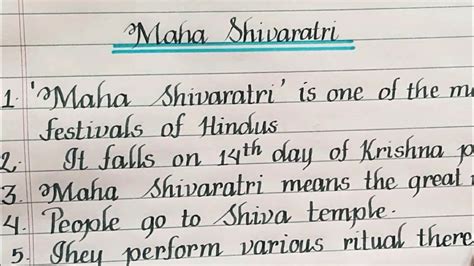 Maha Shivaratri
1. 'Maha Shivaratri' is one of the
festivals of Hindus
2. It falls on 14th day of Krishna
3. Maha Shivaratri means the great
4. People go to Shiva temple.
5. They perform various ritual there